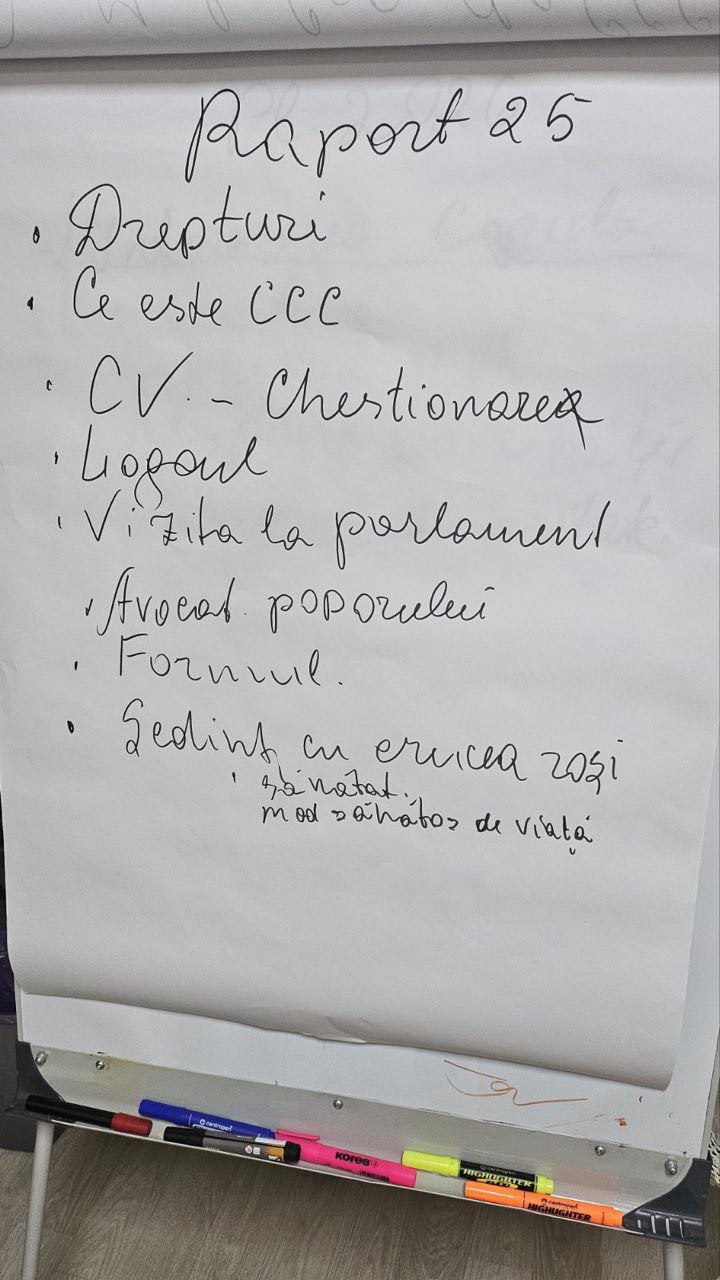 Raport 25
• Drepturi
• Ce este CCC
• CV. - Chestionarea
• Logoul
• Vizita la parlament
• Avocat. poporului
• Formul.
• Ședinț cu crucea roși
• sănătat.
mod sănătos de viață
centropen
KORES
centropen
HIGHLIGHTER
centropen
HIGHLIGHTER